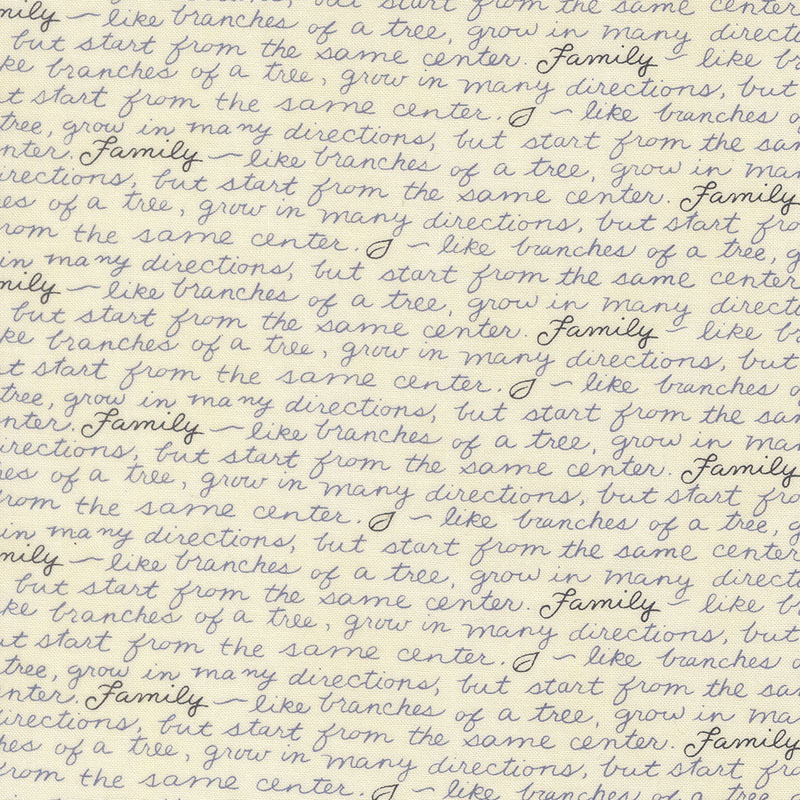 but start from the same center
mily ~ like branches of a tree, grow in many directi
but start from the same center. Family ~ like br
ke branches of a tree, grow in many directions, but
t start from the same center. ~ like branches o
tree, grow in many directions, but start from the sam
nter. Family ~ like branches of a tree, grow in man
irections, but start from the same center. Family
es of a tree, grow in many directions, but start fro
rom the same center. ~ like branches of a tree, g
in many directions, but start from the same center
mily ~ like branches of a tree, grow in many directi
but start from the same center. Family ~ like br
ke branches of a tree, grow in many directions, but
t start from the same center. ~ like branches o
tree, grow in many directions, but start from the sam
nter. Family ~ like branches of a tree, grow in man
irections, but start from the same center. Family
hes of a tree, grow in many directions, but start fro
rom the same center. ~ like branches of a tree, g
in many directions, but start from the same center
mily ~ like branches of a tree, grow in many directi
but start from the same center. Family ~ like br
ke branches of a tree, grow in many directions, but
ut start from the same center. ~ like branches o
tree, grow in many directions, but start from the sa
nter. Family ~ like branches of a tree, grow in ma
directions, but start from the same center. Family
hes of a tree, grow in many directions, but start fro
rom the same center. ~ like branches of a tree, g